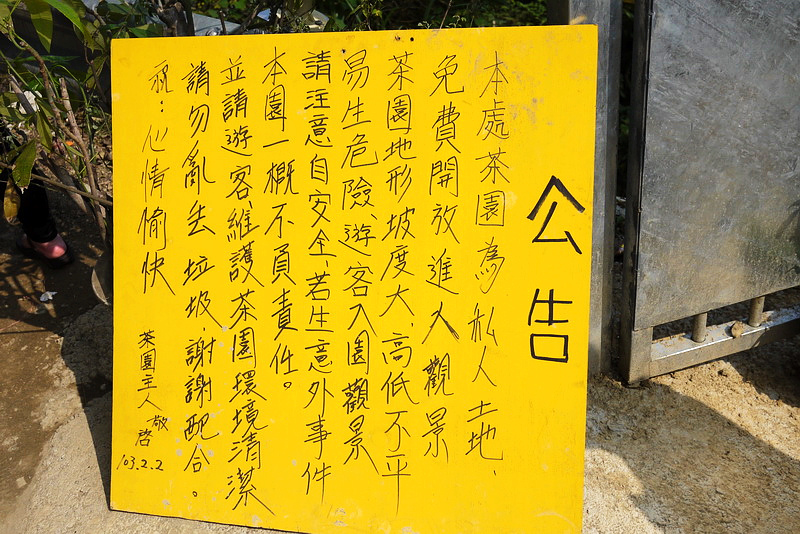 公告
本處茶園為私人土地、
免費開放進入觀景
茶園地形坡度大、高低不平
易生危險、遊客入園觀景
請注意自安全、若生意外事件
本園一概不負責任。
並請遊客、維護茶園環境清潔
請勿亂丟垃圾、謝謝配合。
祝：心情愉快
茶園主人敬啓
103.2.2